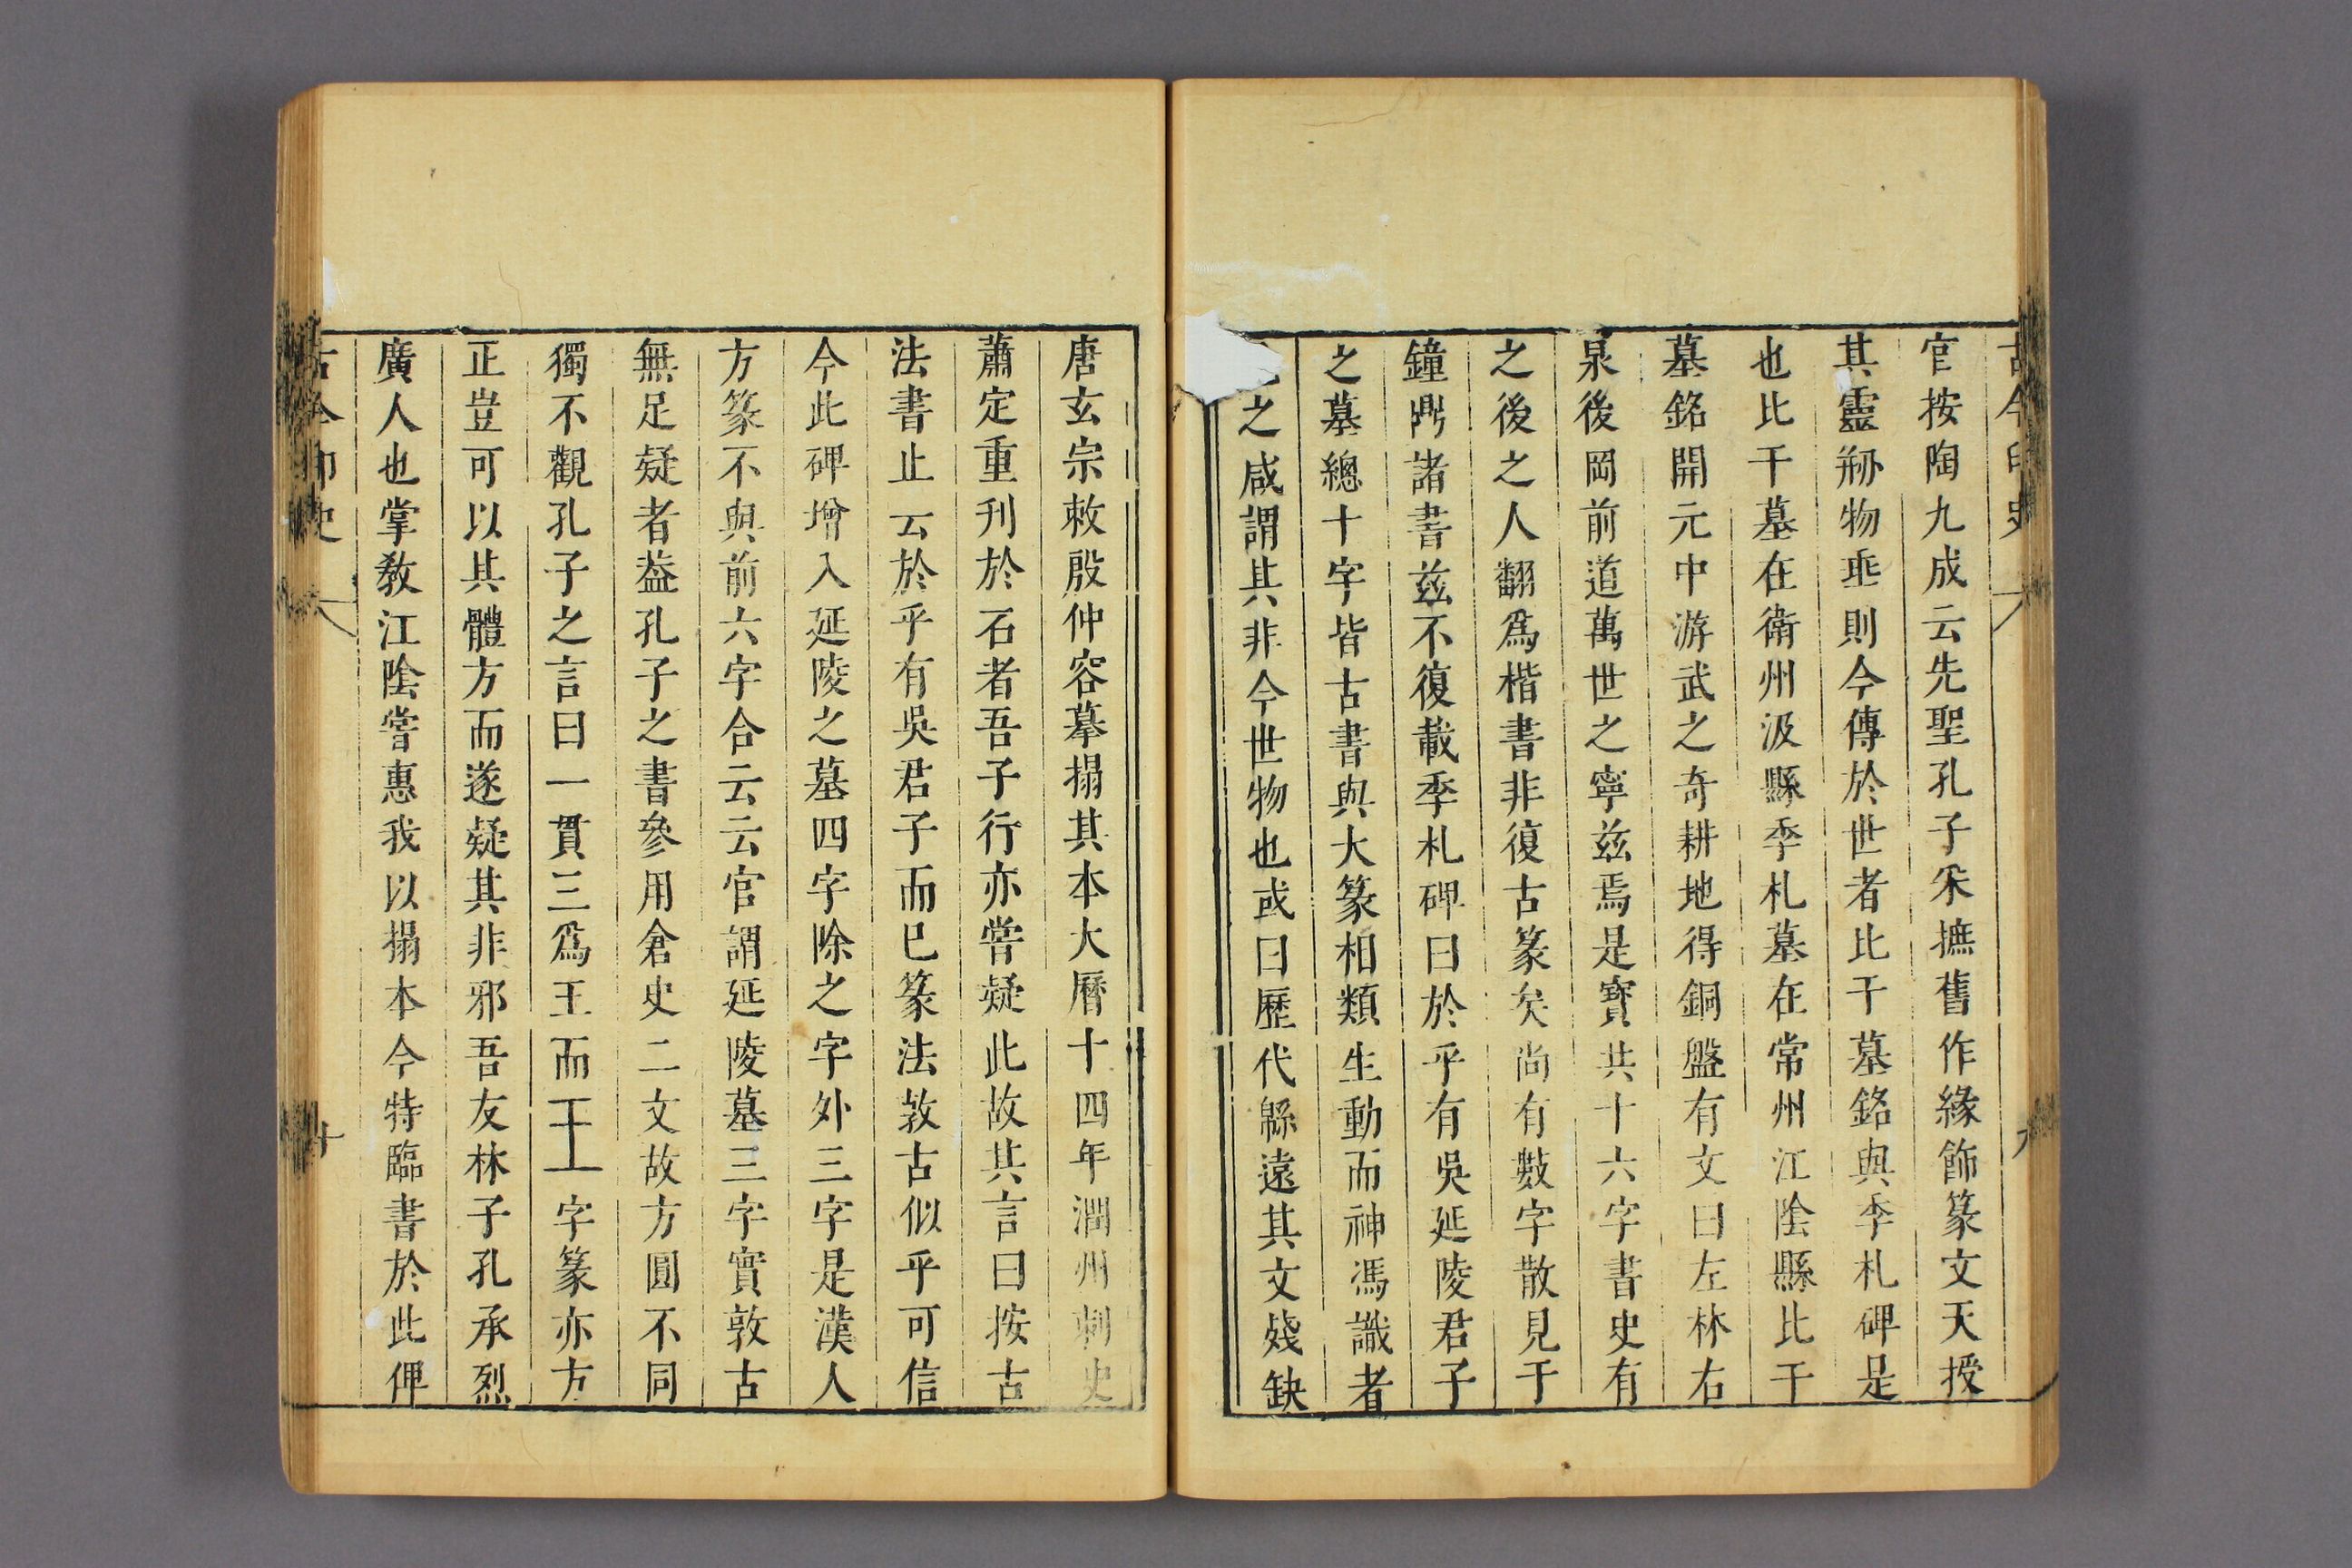 古今印史
官按陶九成云先聖孔子采摭舊作緣飾篆文天授
其靈剏物垂則今傳於世者比干墓銘與季札碑是
也比干墓在衛州汲縣季札墓在常州江陰縣比干
墓銘開元中游武之奇耕地得銅盤有文曰左林右
泉後岡前道萬世之寧茲焉是寳共十六字書史有
之後之人翻爲楷書非復古篆矣尚有數字散見于
鐘鼎諸書茲不復載季札碑曰於乎有吳延陵君子
之墓總十字皆古書與大篆相類生動而神馮識者
之咸謂其非今世物也或曰歷代緜遠其文殘缺
唐玄宗敕殷仲容摹搨其本大曆十四年潤州刺史
蕭定重刊於石者吾子行亦嘗疑此故其言曰按古
法書止云於乎有吳君子而已篆法敦古似乎可信
今此碑增入延陵之墓四字除之字外三字是漢人
方篆不與前六字合云云官謂延陵墓三字實敦古
無足疑者葢孔子之書參用倉史二文故方圓不同
獨不觀孔子之言曰一貫三爲王而王字篆亦方
正豈可以其體方而遂疑其非邪吾友林子孔承烈
廣人也掌敎江陰嘗惠我以搨本今特臨書於此俾
古今印史 十